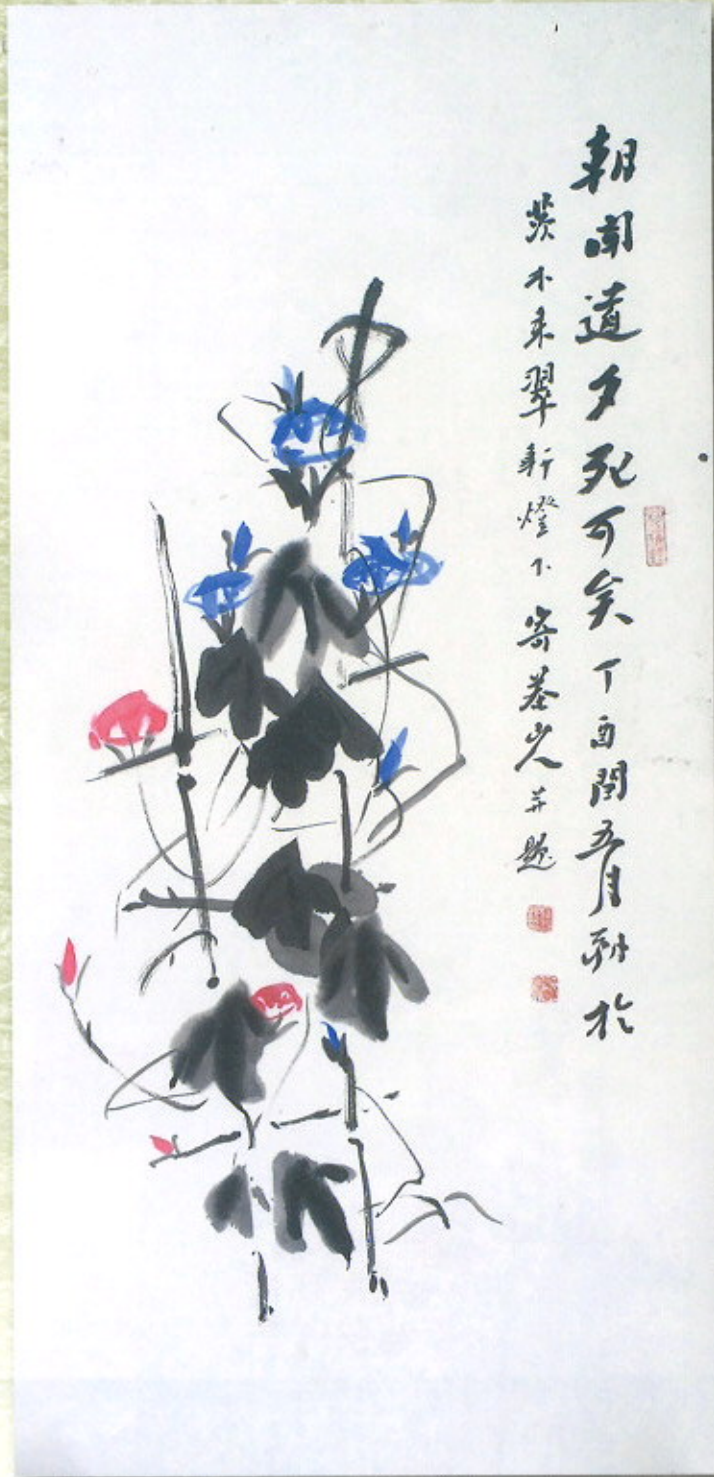 朝聞道夕死可矣丁酉閏五月朔於
茨木来翠軒燈下寄山人并題